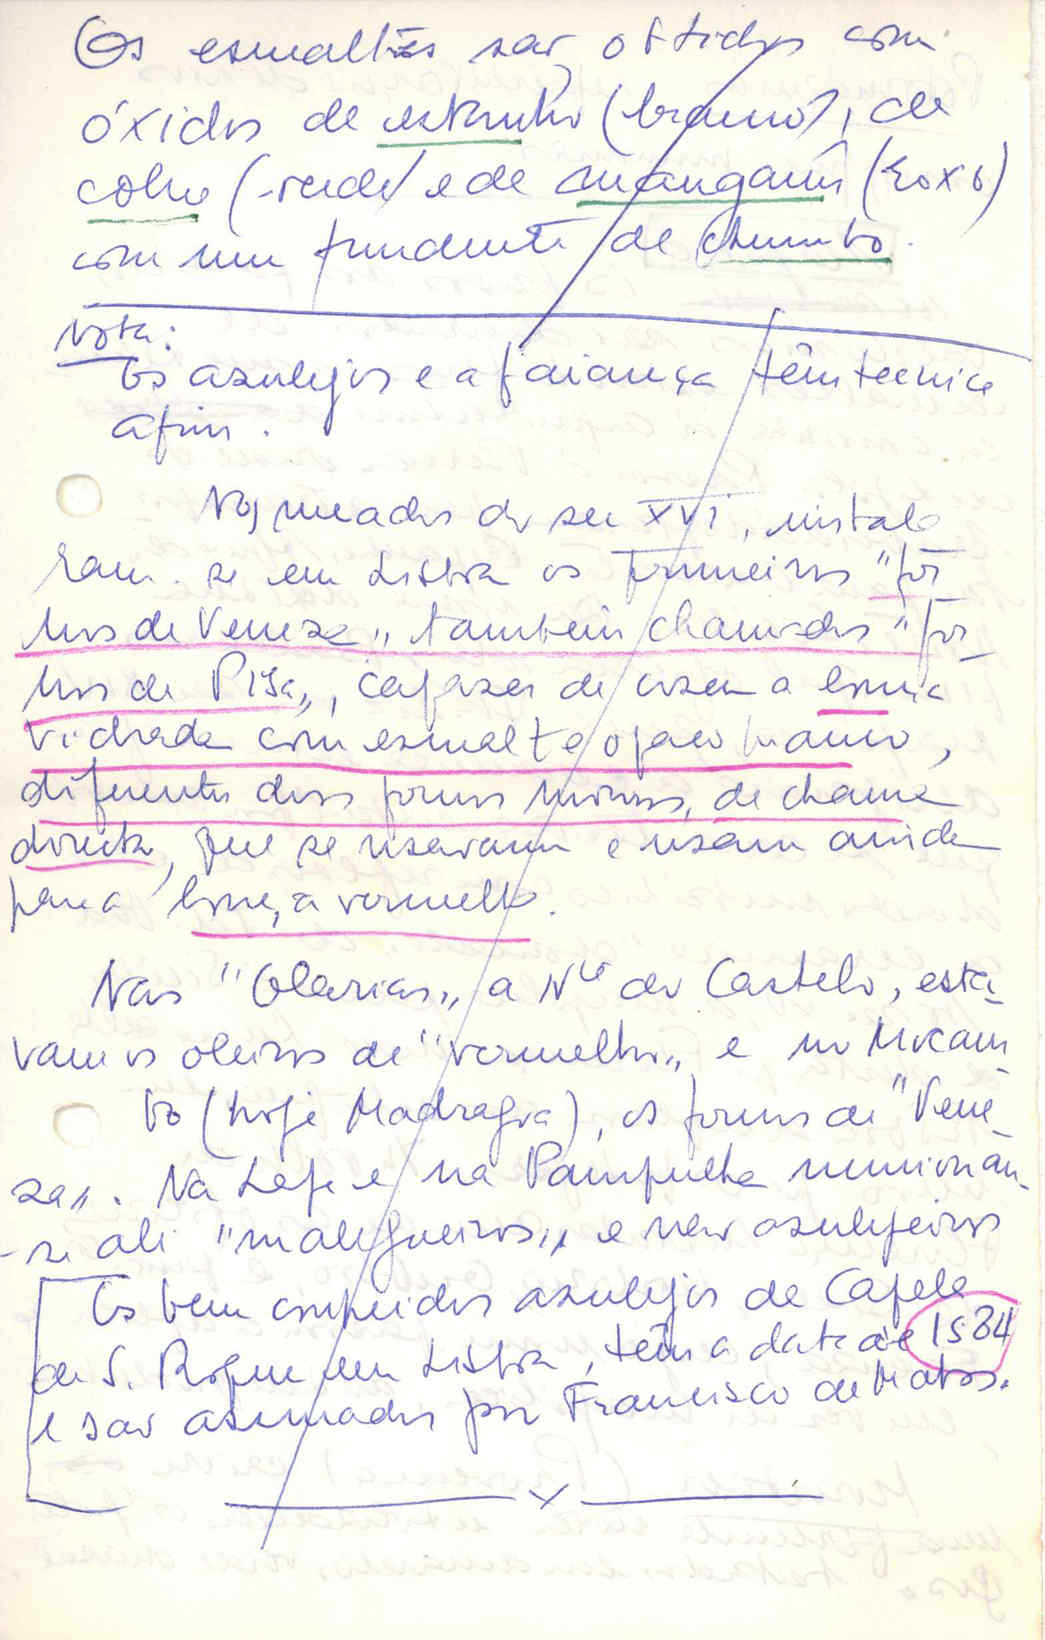 Os esmaltes são obtidos com
óxidos de estanho (branco), de
cobre (verde) e de manganês (roxo)
com um fundente de chumbo.
Nota:
Os azulejos e a faiança têm tecnica
afim.
Nos meados do sec XVI, instala
ram-se em Lisboa os primeiros "for
nos de Veneza„ também chamados "for
nos de Pisa„, capazes de cozer a louça
vidrada com esmalte opaco branco,
diferentes dos fornos mouros, de chama
directa, que se usavam e usam ainda
para louça vermelha.
Nas "Olarias„ a N^te do Castelo, esta-
vam os oleiros de "vermelho„ e no Mocam
bo (hoje Madragoa), os fornos de "Vene
za„. Na Lapa e na Pampulha
-se ali "malegueiros„ e nas azulejeiros
Os bem conhecidos azulejos da Capela
de S. Roque em Lisboa, têm a data de 1584
e são assinados por Francisco de Matos.